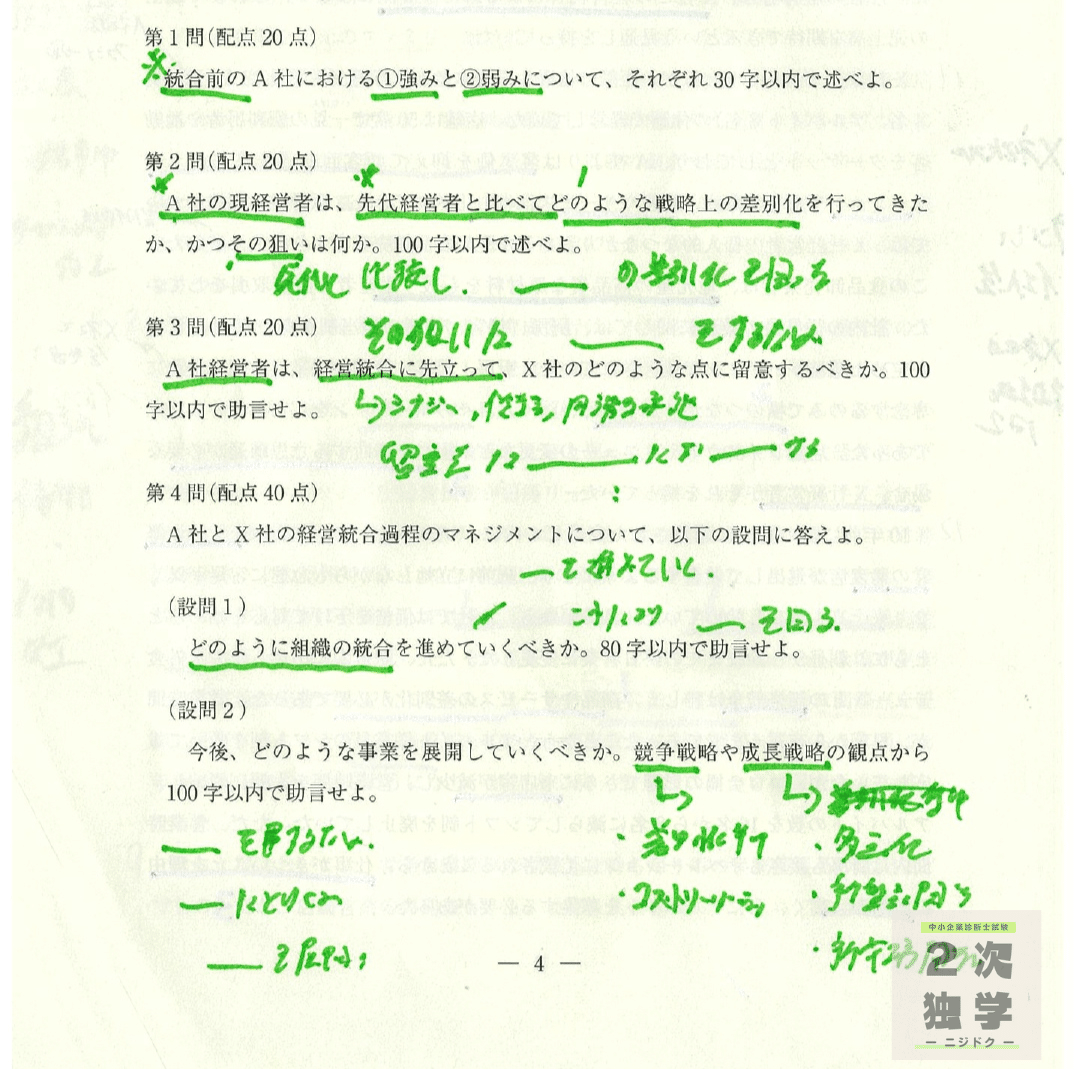 第1問(配点20点)
※ 統合前のA社における①強みと②弱みについて、それぞれ30字以内で述べよ。
第2問(配点20点)
A社の現経営者は、先代経営者と比べてどのような戦略上の差別化を行ってきた
か、かつその狙いは何か。100字以内で述べよ。
先代と比較し、 の差別化を図った
第3問(配点20点)
その狙いは をするため
A社経営者は、経営統合に先立って、X社のどのような点に留意するべきか。100
字以内で助言せよ。
留意点は
第4問(配点40点)
A社とX社の経営統合過程のマネジメントについて、以下の設問に答えよ。
を進めていく
(設問1)
により を図る。
どのように組織の統合を進めていくべきか。80字以内で助言せよ。
(設問2)
今後、どのような事業を展開していくべきか。競争戦略や成長戦略の観点から
100字以内で助言せよ。
・差別化 ・多角化
・コストリーダー
― 4 ―
中小企業診断士試験
2次
独学
ー ニジドク ー